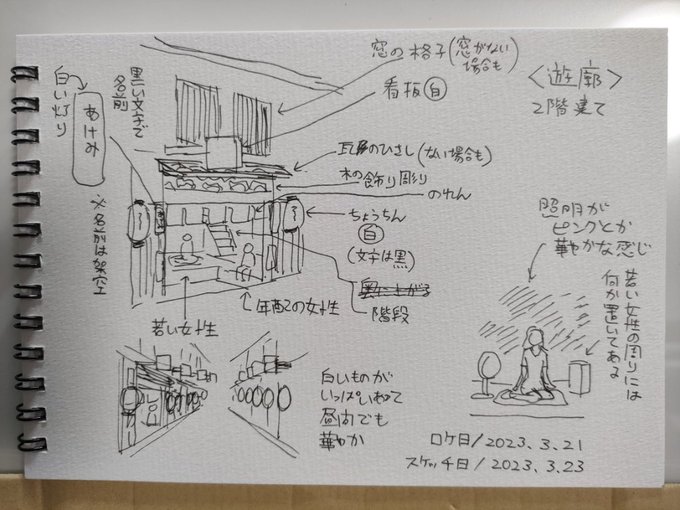 窓の格子(窓がない
場合も)
看板 白
<遊廓>
2階建て
黒い文字で
名前
白い灯り
あけみ
※名前は架空
瓦のひさし(ない場合も)
木の飾り彫り
のれん
ちょうちん
白
(文字は黒)
階段
年配の女性
若い女性
照明が
ピンクとか
華やかな感じ
若い女性の周りには
何か置いてある
白いものが
いっぱい
昼間でも
華やか
ロケ日/2023.3.21
スケッチ日/2023.3.23